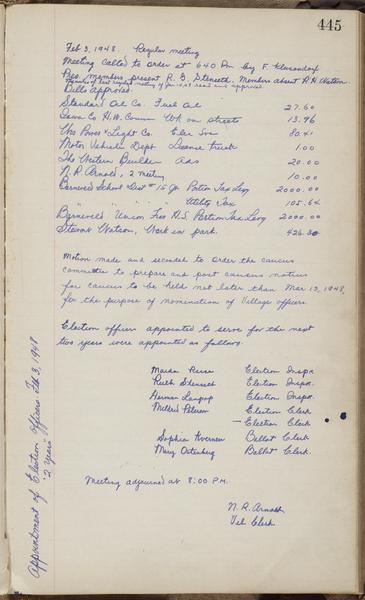 445
Feb 3, 1948. Regular meeting
Meeting called to order at 6:40 Pm by F. Klusendorf
Pres. members present R. G. Stenseth. Members absent R.H. Watson
Minutes of last regular meeting of Jan 10, 48 read and approved
Bills Approved.
Standard Oil Co. Fuel Oil 27.60
Iowa Co H.W. Comm Wk on streets 13.96
Wis Power & Light Co. Elec Svc 80.41
Motor Vehicle Dept License truck 1.00
The Western Builder Ads 20.00
N. R. Arnold, 2 meeting 10.00
Barneveld School Dist # 15 Jt Portion Tax Levy 2000.00
" " " " Utility Tax 105.64
Barneveld Union Free H.S. Portion Tax Levy 2000.00
Stewart Watson, Work in park. 426.30
Motion made and seconded to order the caucus
committee to prepare and post caucus notices
for caucus to be held not later than Mar 13, 1948,
for the purpose of nomination of Village officers
Election officers appointed to serve for the next
two years were appointed as follows.
Reese Election Inspr.
Ruth Stenseth Election Inspr.
Herman Election Inspr.
Mildred Peterson Election Clerk
— Election Clerk
Sophia Ballot Clerk
Mary Ballot Clerk.
Meeting adjourned at 8:00 P.M.
N. R. Arnold
Vil Clerk
Appointment of Election Officers Feb 3, 1948
"2 Years"